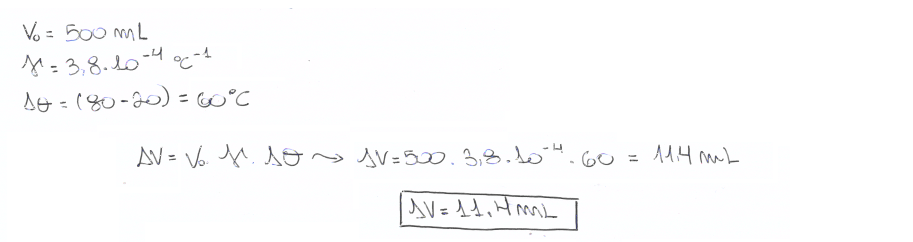 V₀ = 500 mL
γ = 3,8.10⁻⁴ °C⁻¹
Δθ = (80-20) = 60°C
ΔV = V₀. γ. Δθ ⤳ ΔV = 500. 3,8.10⁻⁴. 60 = 11,4 mL
ΔV = 11,4 mL